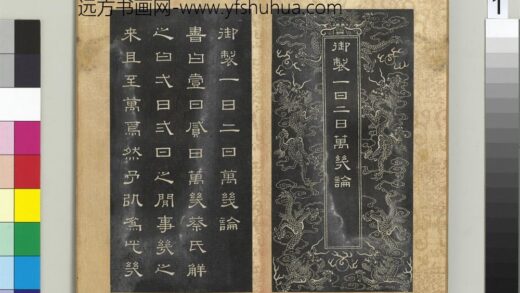 远方书画网-www.yfshuhua.com
1
御製一日二日萬幾論
御製一日二日萬幾論
書曰壹日貳日萬幾蔡氏解
之曰弌日弍日之間事幾之
來且至萬焉然予為幾